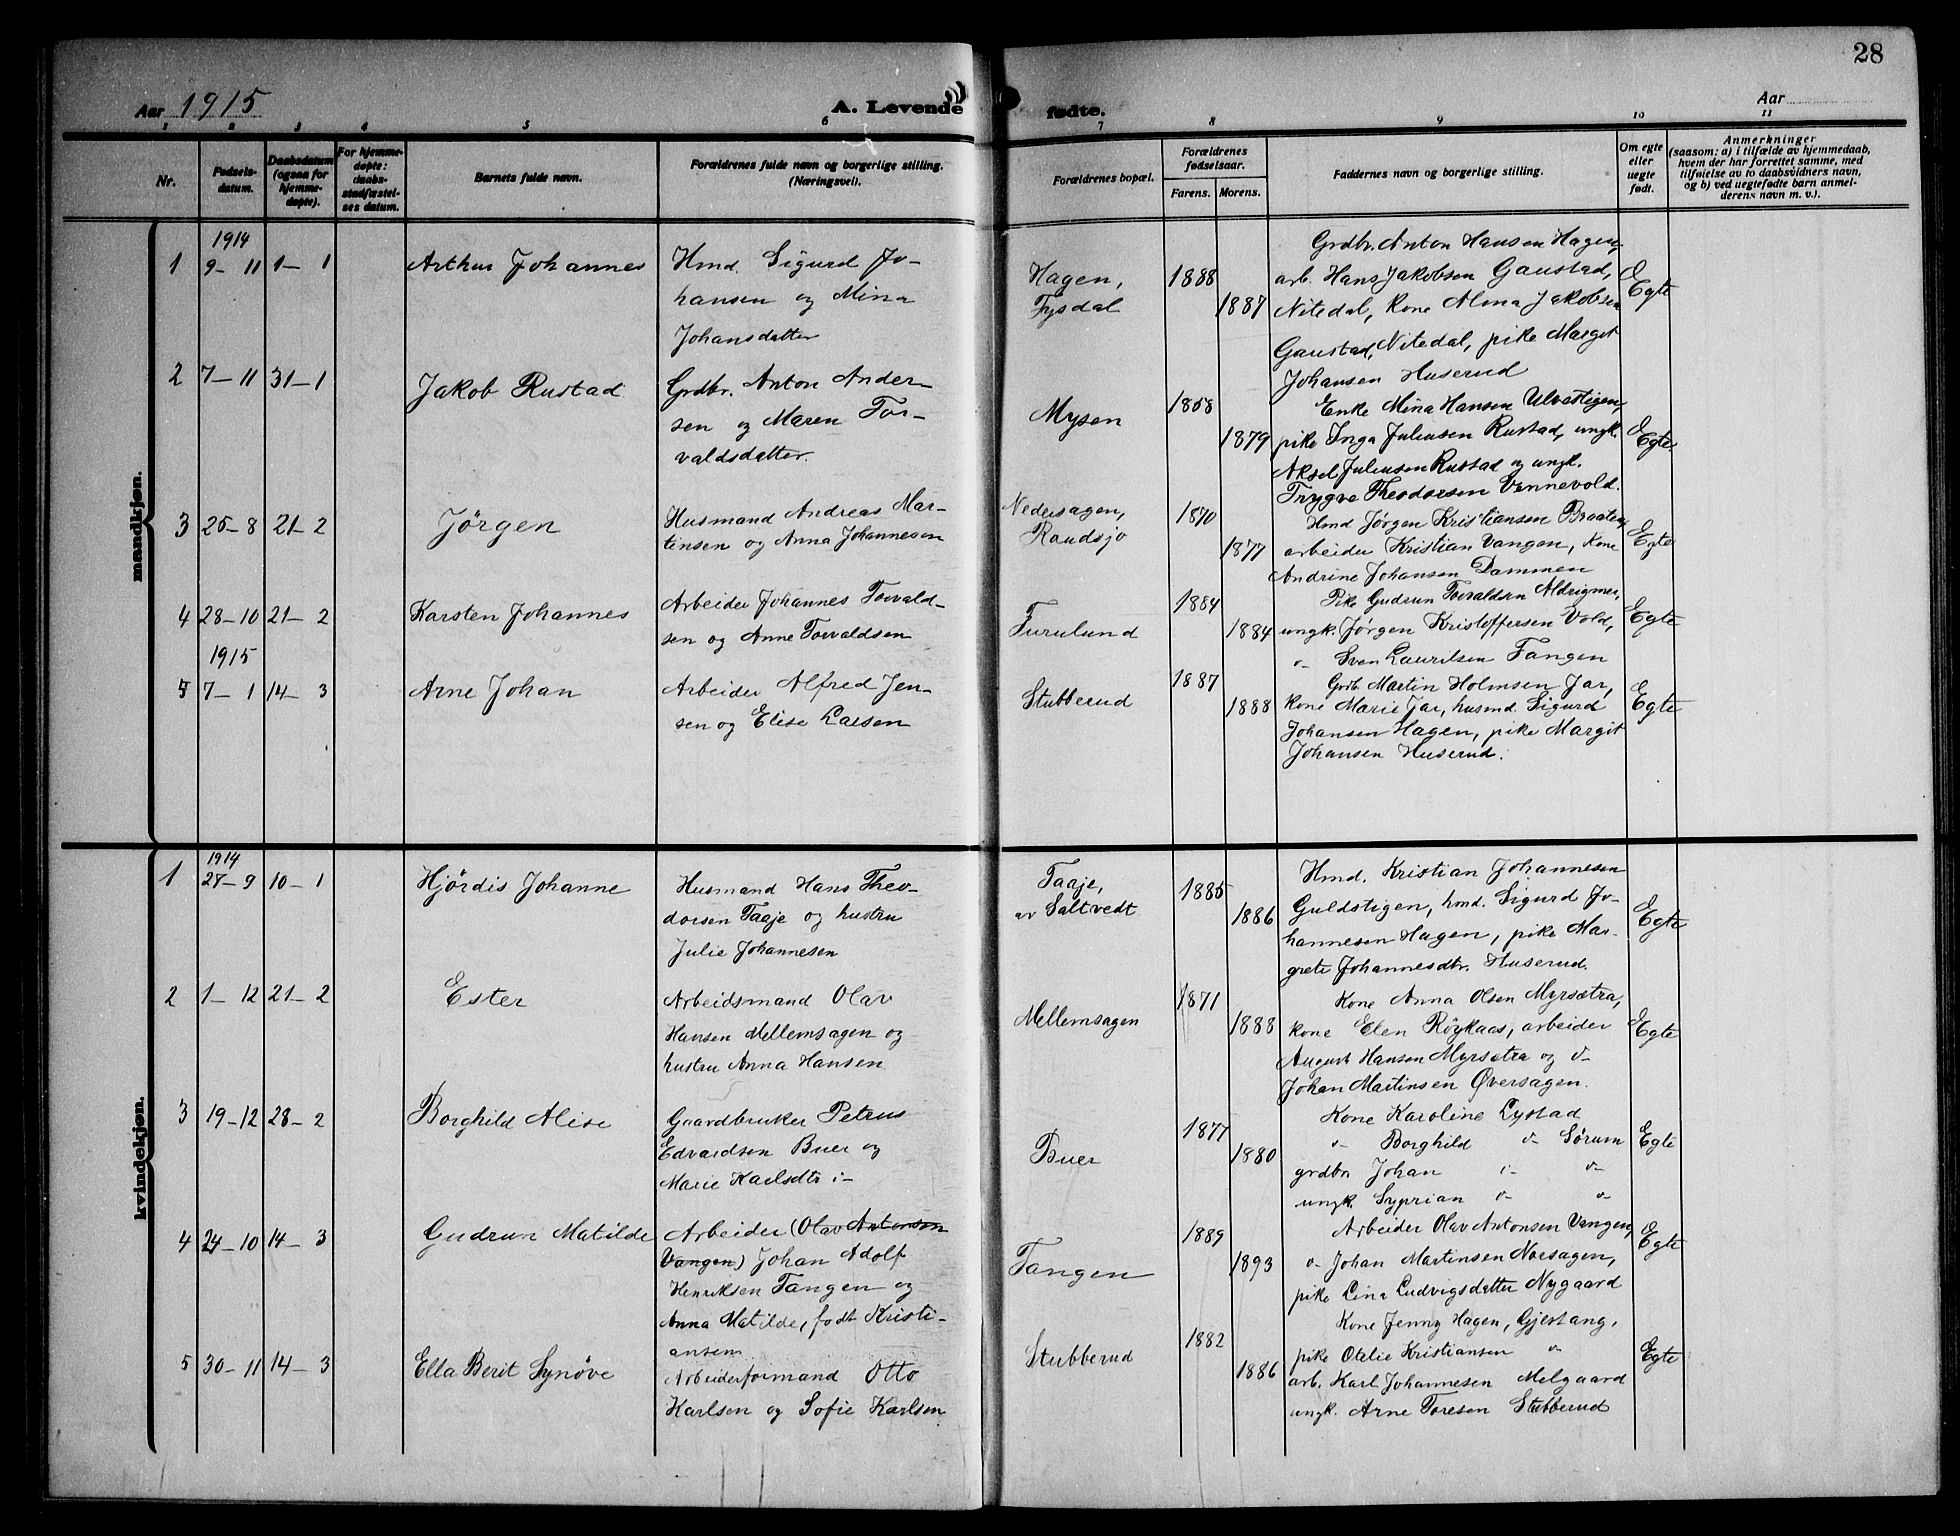 28
Aar 1915
A. Levende fødte.
Aar
1 2 3 4 5 6 7 8 9 10 11
Nr.
Fødsels-
datum.
Daabsdatum
(ogsaa for
hjemme-
døpte).
For hjemme-
døpte:
daabs-
stadfæstel-
ses datum.
Barnets fulde navn.
Forældrenes fulde navn og borgerlige stilling.
(Næringsvei).
Forældrenes bopæl.
Forældrenes
fødselsaar.
Farens. Morens.
Faddernes navn og borgerlige stilling.
Om egte
eller
uegte
født.
Anmerkninger
(saasom: a) i tilfælde av hjemmedaab,
hvem der har forrettet samme, med
tilføielse av to daabsvidners navn,
og b) ved uegtefødte barn anmel-
derens navn m. v.).
mandkjøn.
1914
1 9–11 1–1 Arthur Johannes
Hmd. Sigurd Jo-
hansen og Mina
Johansdatter
Hagen,
Fysdal
1888
1887
Grdbr. Anton Hansen Hagen,
arb. Hans Jakobsen Gaustad,
Nitedal, kone Alma Jakobsen
Gaustad, Nitedal, pike Marget
Johansen Huserud
Egte
2 7–11 31–1 Jakob Rustad
Grdbr. Anton Ander-
sen og Maren Tor-
valdsdatter.
Mysen
1858
1879
Enke Mina Hansen Ulvestigen,
pike Inga Juliusen Rustad, ungk.
Aksel Juliusen Rustad og ungk.
Trygve Theodorsen Vennevold.
Egte
3 25–8 21–2 Jørgen
Husmand Andreas Mar-
tinsen og Anna Johannesen
Nedersagen,
Raudsjø
1870
1877
Hmd Jørgen Kristiansen Braaten,
arbeider Kristian Vangen, kone
Andrine Johansen Dammen
Egte
4 28–10 21–2 Karsten Johannes
Arbeider Johannes Torvald-
sen og Anne Torvaldsen
Furulund
1884
1884
Pike Gudrun Torvaldsen Aldrigmer,
ungk. Jørgen Kristoffersen Vold,
" Sven Lauritsen Tangen
Egte
1915
5 7–1 14–3 Arne Johan
Arbeider Alfred Jen-
sen og Elise Larsen
Stubberud
1887
1888
Grdb. Martin Holmsen Jar,
kone Marie Jar, husmd Sigurd
Johansen Hagen, pike Margit
Johansen Huserud.
Egte
kvindekjøn.
1914
1 27–9 10–1 Hjørdis Johanne
Husmand Hans Theo-
dorsen Taaje og hustru
Julie Johannesen
Taaje,
av Saltvedt
1885
1886
Hmd. Kristian Johannesen
Guldstigen, hmd. Sigurd Jo-
hannesen Hagen, pike Mar-
grete Johannesdtr. Huserud.
Egte
2 1–12 21–2 Ester
Arbeidsmand Olav
Hansen Mellemsagen og
hustru Anna Hansen.
Mellemsagen
1871
1888
Kone Anna Olsen Myrsætra,
kone Elen Røykaas, arbeider
August Hansen Myrsætra og d–
Johan Martinsen Øversagen.
Egte
3 19–12 28–2 Borghild Alise
Gaardbruker Petrus
Edvardsen Buer og
Marie Karlsdtr i–
Buer
1877
1880
Kone Karoline Lystad
" Borghild d– Sørum
grdbr Johan i– d–
ungk. Syprian d– "
Egte
4 24–10 14–3 Gudrun Matilde
Arbeider (Olav Antonsen
Vangen) Johan Adolf
Henriksen Tangen og
Anna Matilde, født Kristi-
ansen
Tangen
1889
1893
Arbeider Olav Antonsen Vangen,
" Johan Martinsen Norsagen,
pike Lina Ludvigsdatter Nygaard
Egte
5 30–11 14–3 Ella Berit Synøve
Arbeiderformand Otto
Karlsen og Sofie Karlsen
Stubberud
1882
1886
Kone Jenny Hagen, Gjestang,
pike Otelie Kristiansen "
arb. Karl Johannesen Melgaard
ungk. Arne Toresen Stubberud
Egte